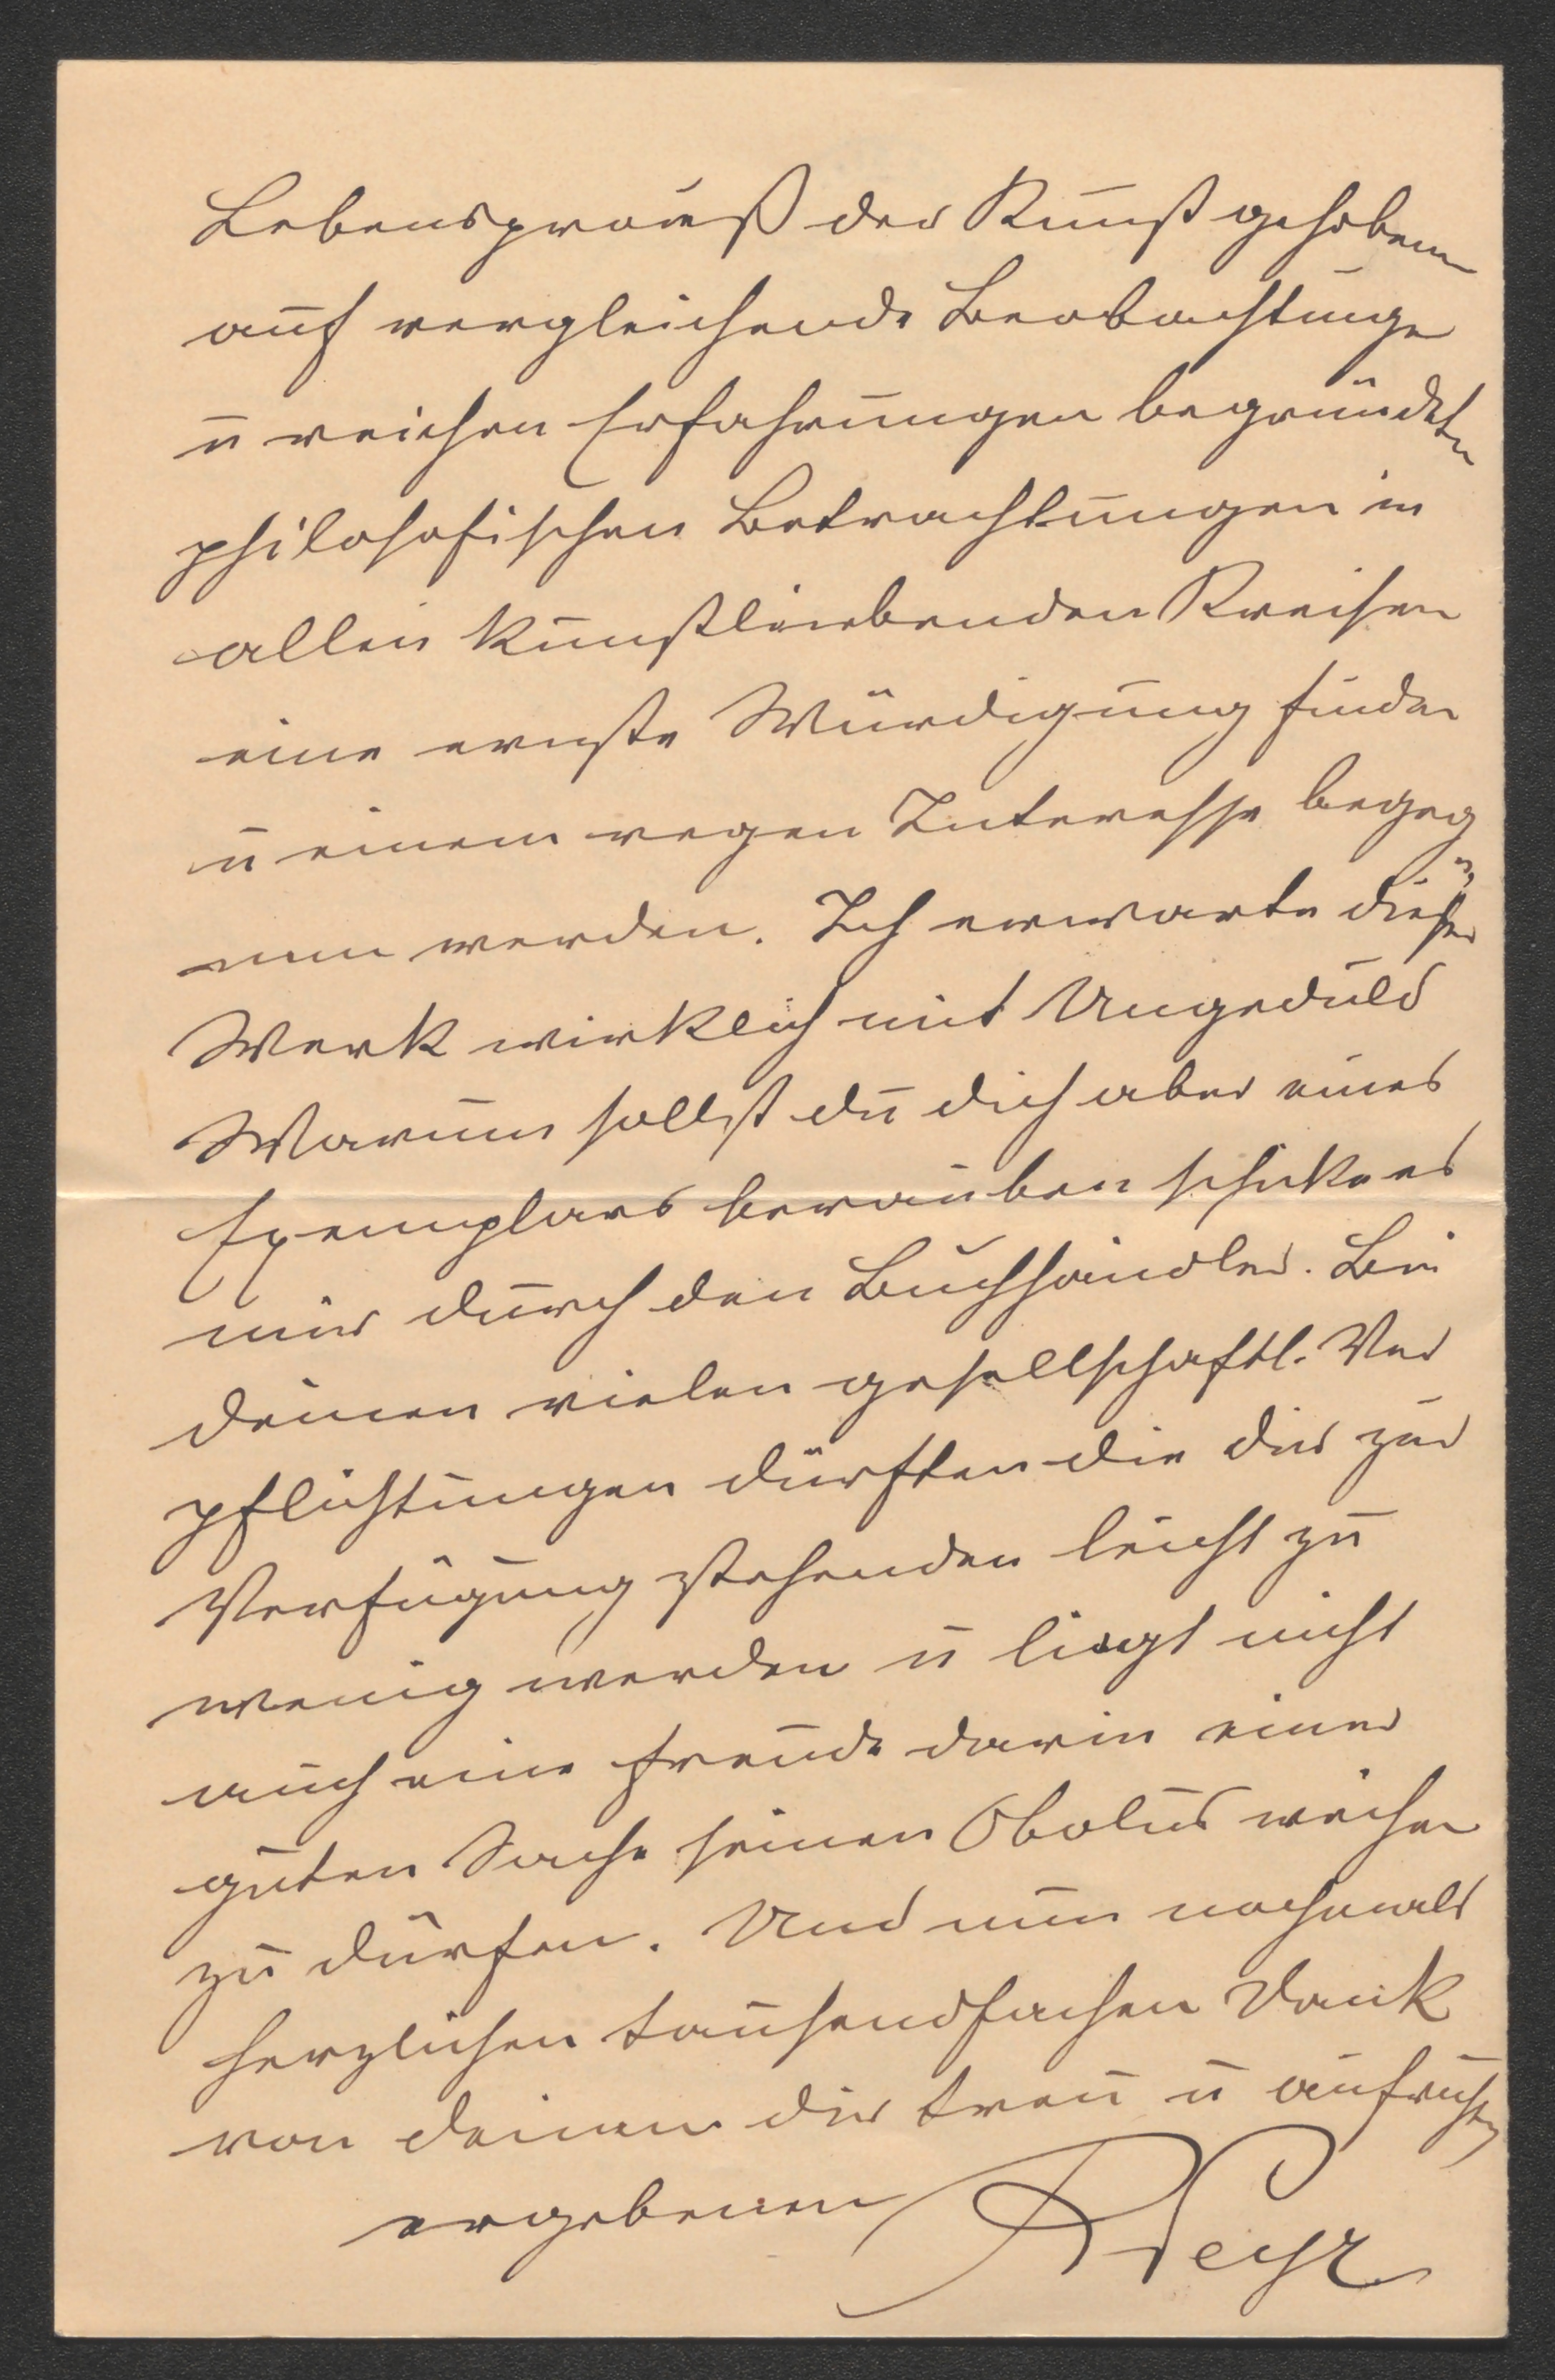 Lebenspraxiß der Kunst gehobenen
auf vergleichende Beobachtunge
u reichen Erfahrungen begründeten
philosofischen Betrachtungen in
allen kunstliebenden Kreisen
eine ernste Würdigung finden
u einem regen Interesse begeg
nen werden. Ich erwarte dieses
Werk wirklich mit Ungeduld
Warum sollst du dich aber eines
Exemplars berauben schicke es
mir durch den Buchhändler. Bei
deinen vielen gesellschaftl. Ver
pflichtungen dürften die dir zur
Verfügung stehenden leicht zu
wenig werden u liegt nicht
auch eine Freude darin einer
guten Sache seinen Obolus weihen
zu dürfen. Und nun nochmals
herzlichen tausendfachen Dank
von deinem dir treu u aufricht
ergebenen